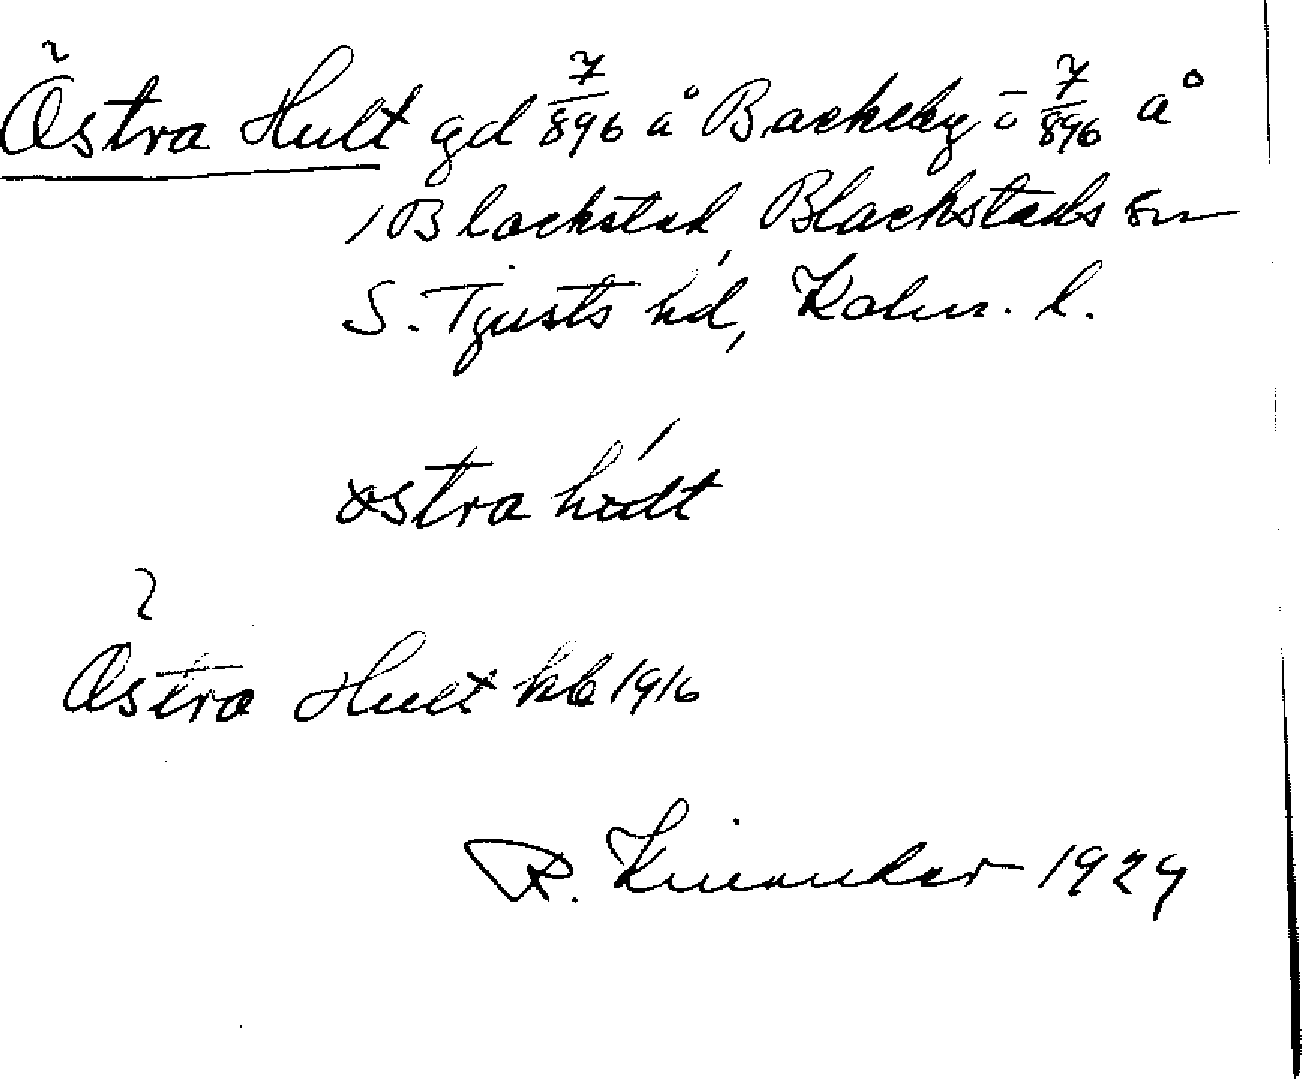 Östra Hult gd 7/896 å Backeby o 7/896 å
1 Blackstad, Blackstads sn
S. Tjusts hd, Kalm. l.
östra hult
Östra Hult kb 1916
R. 1929